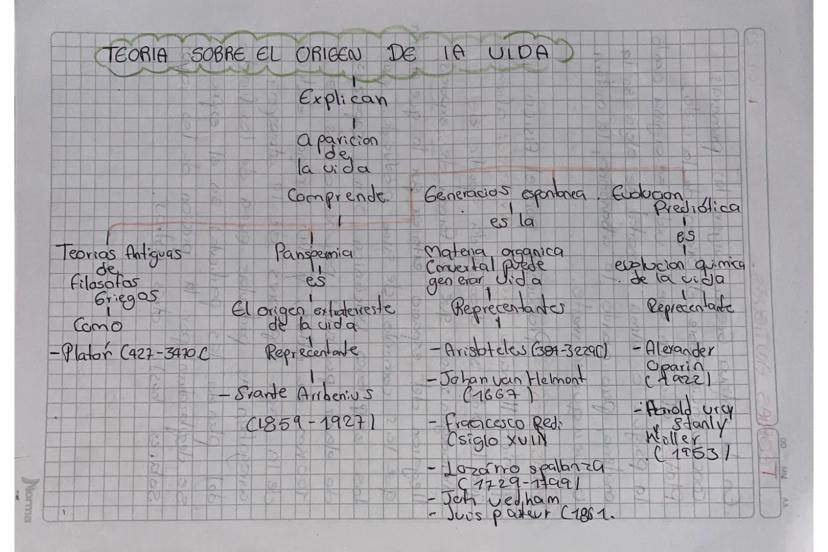 TEORIA SOBRE EL ORIGEN DE LA VIDA
Explican
aparicion
de
la vida
Comprende
Teorias Antiguas
de
filosofos
Griegos
Como
- Platón (427-347
Panspemia
es
El origen extraterreste
de la vida
Reprecentante
- Svante Arrbenius
(1859-1927)
Generacios espontanea.
es la
Materia organica
puede
generar vida
Reprecentantes
- Aristoteles (384-322
- Johan van Helmont
(1667)
- Francicesco Redi
(siglo XVII)
- Lozarro spalanza
(1729-1799)
- Jotn vedham
- Juis pateur (1861.
Evolucion
Predictica
es
evolucion quimica
de la vida
Reprecentante
- Alexander
Oparin
(1922)
- Harold urey
Stanly
Miller
(1953)
Norma